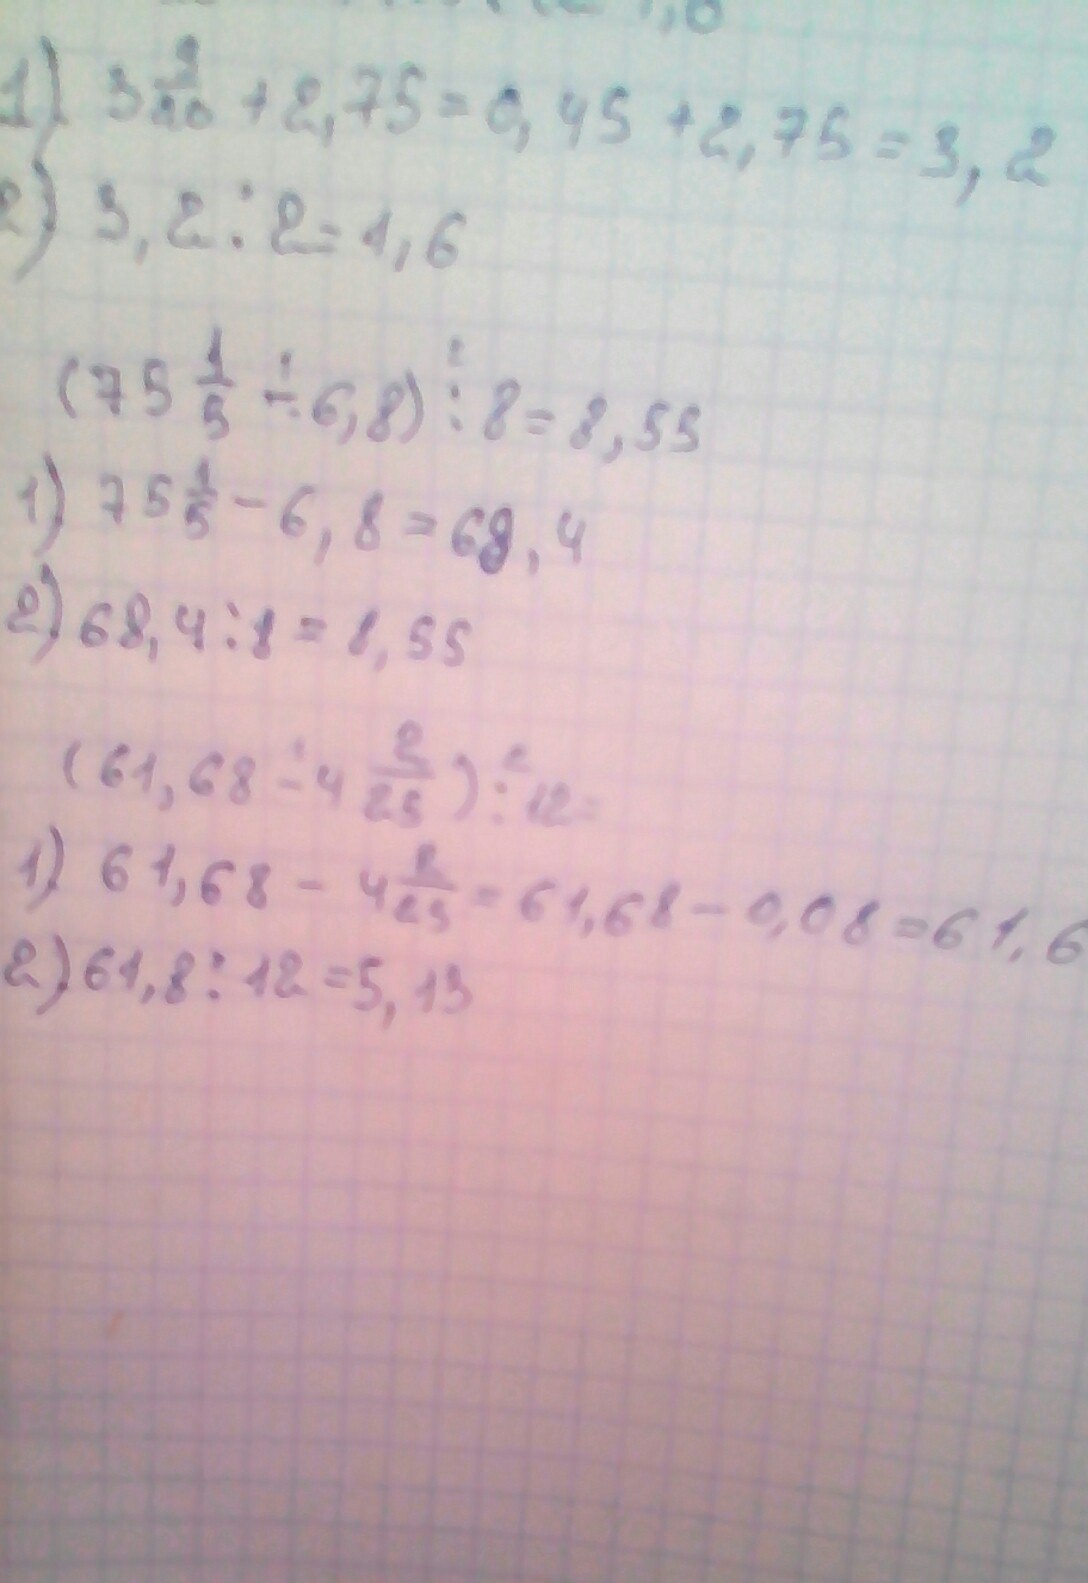 1,6
1) 3 9/20 + 2,75 = 0,45 + 2,75 = 3,2
2) 3,2 : 2 = 1,6
(75 1/5 - 6,8) : 8 = 8,55
1) 75 1/5 - 6,8 = 68,4
2) 68,4 : 8 = 8,55
(61,68 - 4 2/25) : 12 =
1) 61,68 - 4 2/25 = 61,68 - 0,08 = 61,6
2) 61,8 : 12 = 5,13